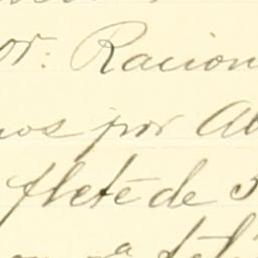 or: Racion
nos por Ab
flete de 3